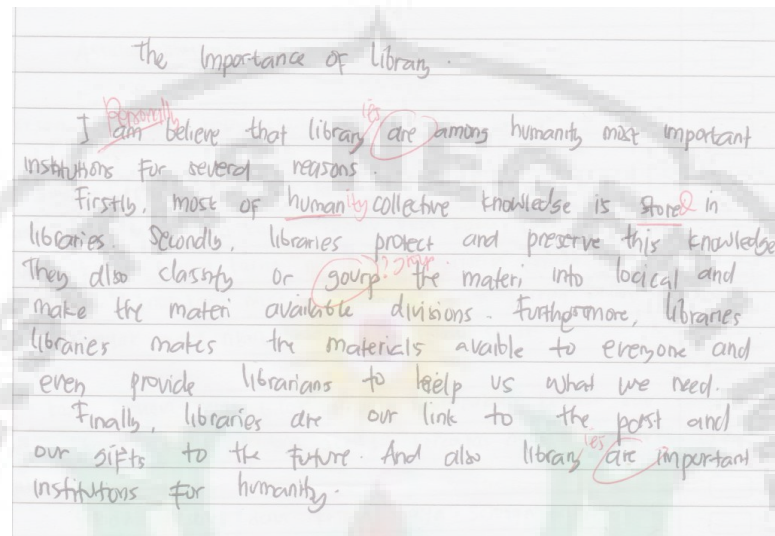 The Importance of Library.
Personally ies
I am believe that library are among humanity most important
institutions for several reasons.
Firstly, most of humanity collective knowledge is stored in
libraries. Secondly, libraries protect and preserve this knowledge
They also classify or gourp ?? group the materi into locical and
make the materi available divisions. Furthermore, libraries
libraries makes the materials avaible to everyone and
even provide librarians to help us what we need.
Finally, libraries are our link to the past and
our gifts to the future. And also library ies are important
institutions for humanity.